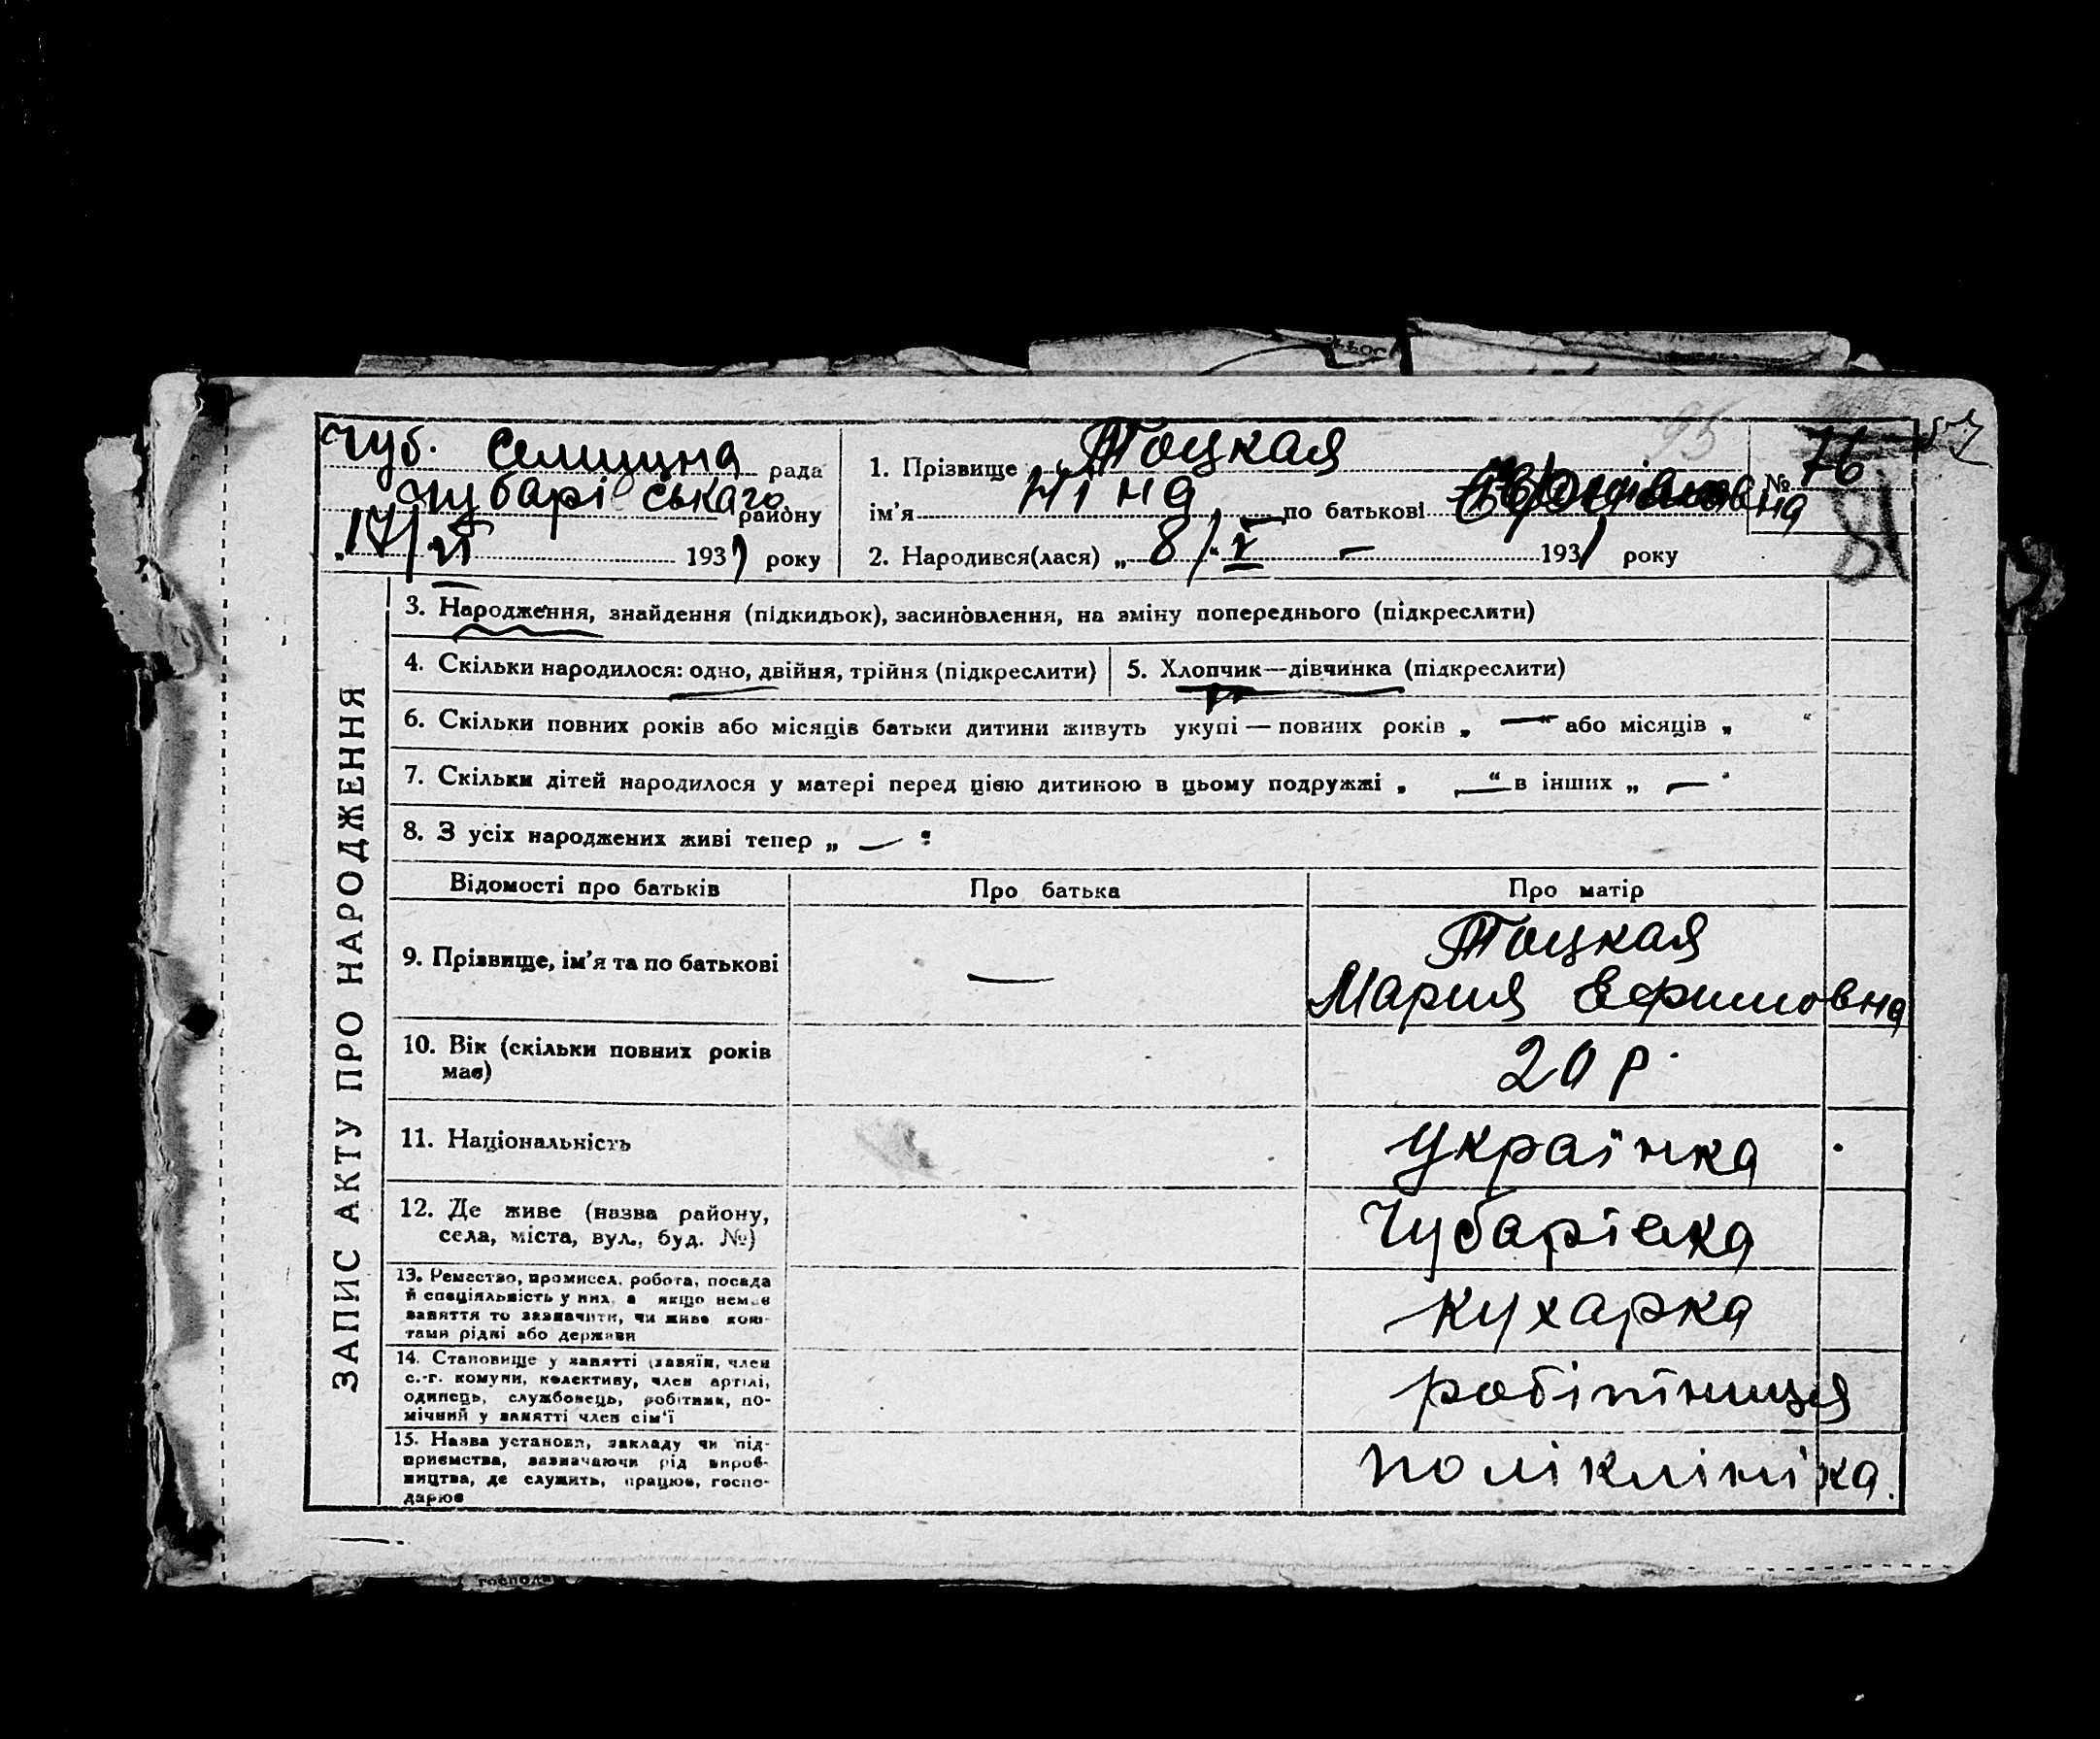 95
Чуб. селищна рада
Чубарівськаго району
„17/VI 1931 року
1. Прізвище Тоцкая
ім'я Ніна по батькові
№ 76
81
2. Народився(лася) „8/“ V – 1931 року
ЗАПИС АКТУ ПРО НАРОДЖЕННЯ
3. Народження, знайдення (підкидьок), засиновлення, на зміну попереднього (підкреслити)
4. Скільки народилося: одно, двійня, трійня (підкреслити)
5. Хлопчик—дівчинка (підкреслити)
6. Скільки повних років або місяців батьки дитини живуть укупі — повних років „ —“ або місяців „ “
7. Скільки дітей народилося у матері перед цією дитиною в цьому подружжі „ —“ в інших „ —“
8. З усіх народжених живі тепер „ — “
Відомості про батьків
Про батька
Про матір
9. Прізвище, ім'я та по батькові
—
Тоцкая
Мария Ефимовна
10. Вік (скільки повних років
має)
20 р.
11. Національність
українка
12. Де живе (назва району,
села, міста, вул., буд. №)
Чубарівка
13. Ремество, промисел, робота, посада
й спеціяльність у них, а якщо немає
заняття то зазначити, чи живе кош-
тами рідні або держави
кухарка
14. Становище у занятті (хазяїн, член
с.-г. комуни, колективу, член артілі,
одинець, службовець, робітник, по-
мічний у занятті член сім'ї
робітниця
15. Назва установи, закладу чи під-
приємства, зазначаючи рід вироб-
ництва, де служить, працює, госпо-
дарює
поліклініка.